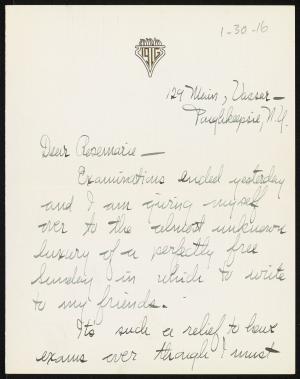 1-30-16
1916
129 Main, Vassar-
Poughkeepsie, N.Y.
Dear Rosemarie -
Examinations ended yesterday
and I am giving myself
over to the almost unknown
luxury of a perfectly free
Sunday in which to write
to my friends. -
Its such a relief to have
exams over though I must